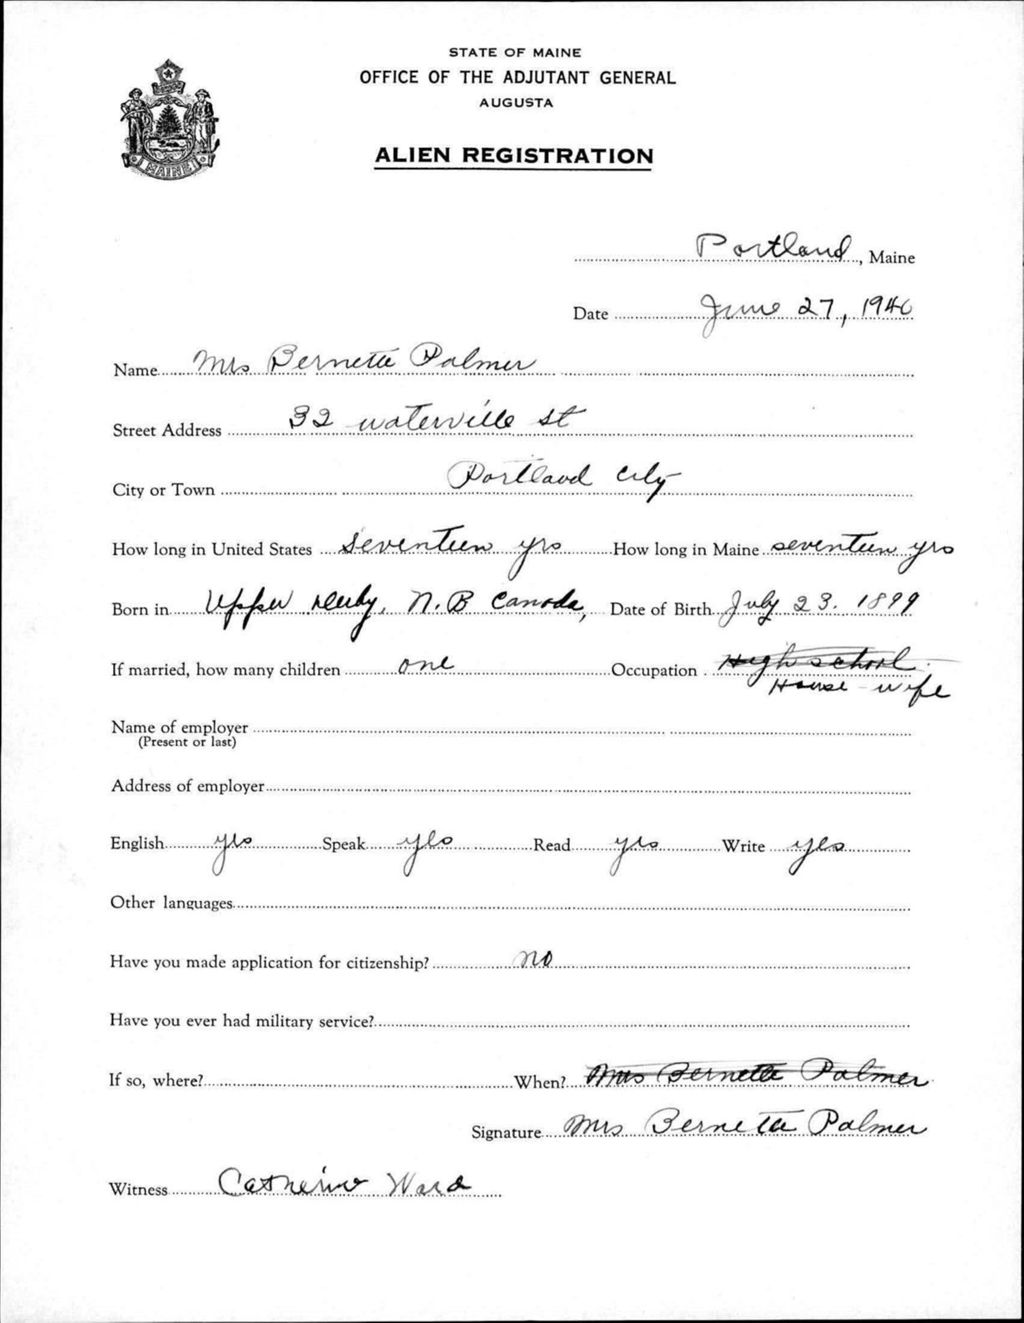 STATE OF MAINE
OFFICE OF THE ADJUTANT GENERAL
AUGUSTA
ALIEN REGISTRATION
MAINE
Portland, Maine
Date June 27, 1940
Name Mrs Bernette Palmer
Street Address 32 waterville St
City or Town Portland City
How long in United States Seventeen yrs How long in Maine seventeen yrs
Born in Upper Derby, N.B Canada, Date of Birth July 23. 1899
If married, how many children one Occupation High school
House-wife
Name of employer
(Present or last)
Address of employer
English yes Speak yes Read yes Write yes
Other languages
Have you made application for citizenship? no
Have you ever had military service?
If so, where? When? Mrs Bernette Palmer
Signature Mrs Bernette Palmer
Witness Catherine Ward